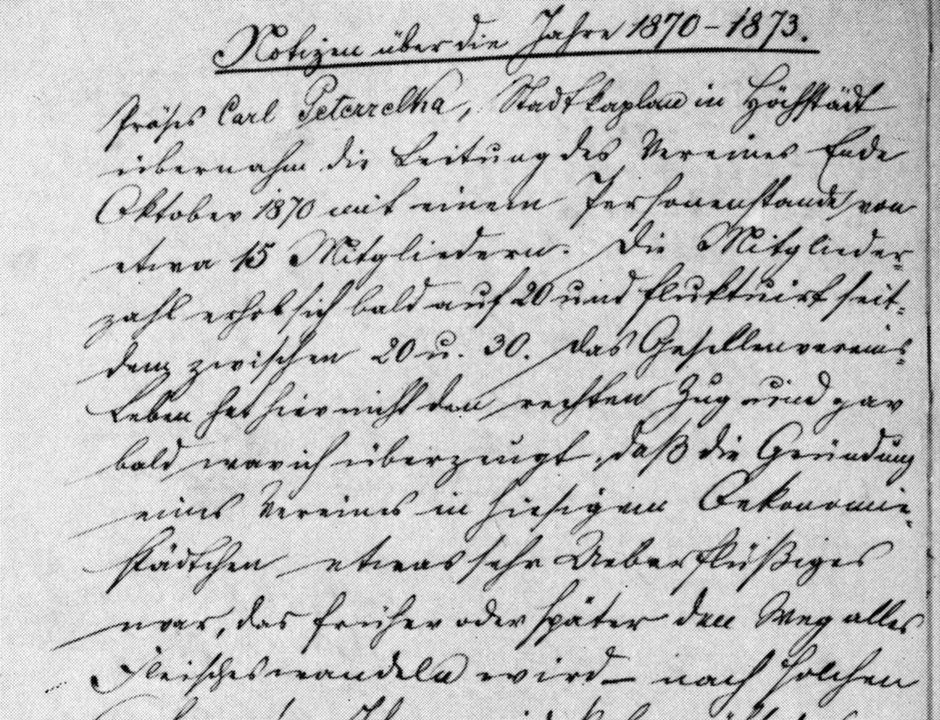 Notizen über die Jahre 1870–1873.
Präses Carl Peterrelka, Stadtkaplan in Höchstädt
übernahm die Leitung des Vereines Ende
Oktober 1870 mit einem Personenstande von
etwa 15 Mitgliedern. Die Mitglieder-
zahl erhob sich bald auf 20 und fluktuirt seit-
dem zwischen 20 u. 30. Das Gesellenvereins-
Leben hat hier nicht den rechten Zug und gar
bald war ich überzeugt, daß die Gründung
eines Vereines in hiesigem Oekonomie-
städtchen etwas sehr Ueberflüßiges
war, das früher oder später den Weg alles
Fleisches wandeln wird – nach solchen